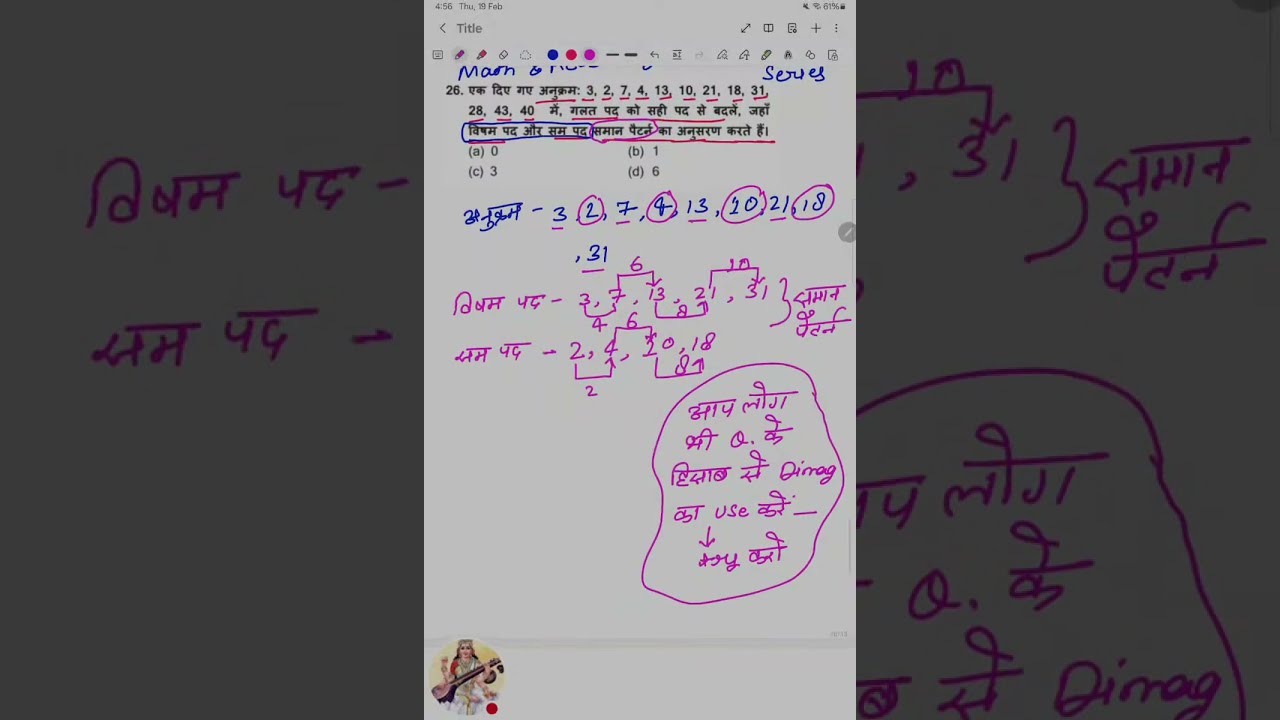 4:56 Thu, 19 Feb
61%
Title
Series
26. एक दिए गए अनुक्रम: 3, 2, 7, 4, 13, 10, 21, 18, 31,
28, 43, 40 में, गलत पद को सही पद से बदलें, जहाँ
विषम पद और सम पद समान पैटर्न का अनुसरण करते हैं।
(a) 0 (b) 1
(c) 3 (d) 6
अनुक्रम - 3, 2, 7, 4, 13, 10, 21, 18
, 31
6 10
विषम पद - 3, 7, 13, 21, 31 } समान
पैटर्न
4 8
6
सम पद - 2, 4, 10, 18
2 8
आप लोग
भी Q. के
हिसाब से Dimag
का use करें -
↓
करो
विषम पद -
सम पद -
10
, 31 } समान
पैटर्न
लोग
Q. के
से Dimag